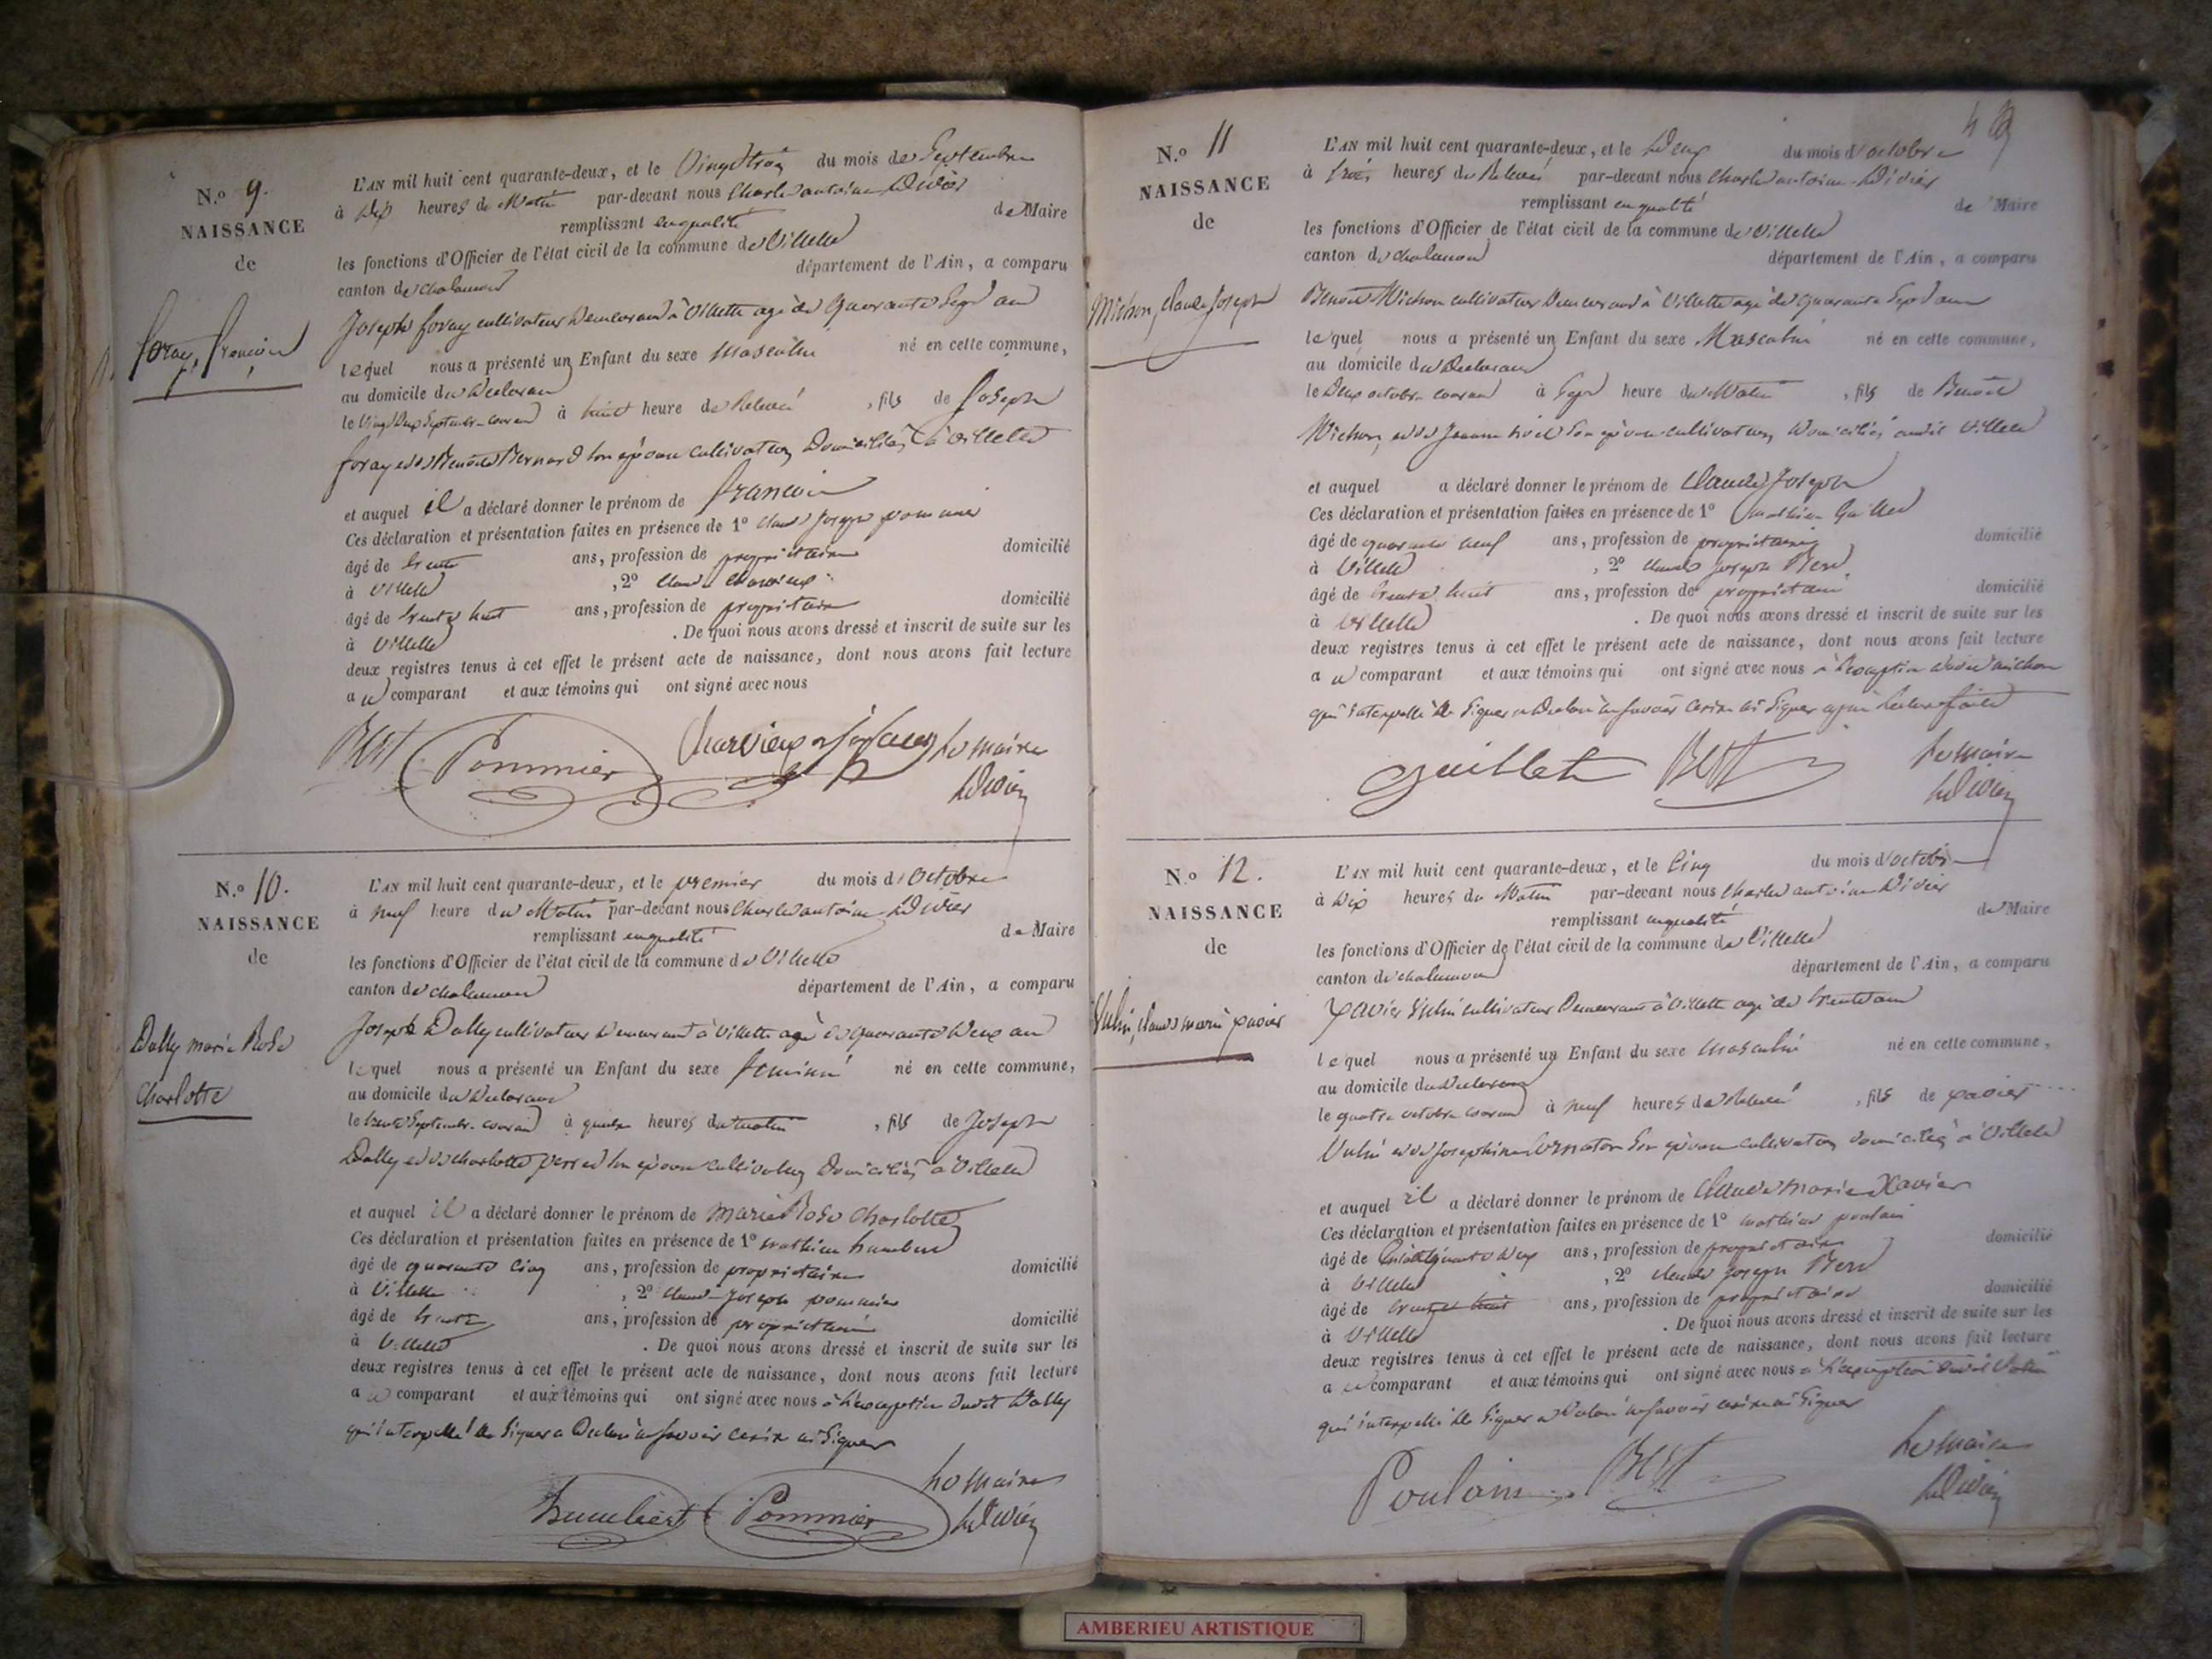 N.º 9.
NAISSANCE
de
foray, françois
L'AN mil huit cent quarante-deux, et le Vingt trois du mois de Septembre
à Dix heures du Matin par-devant nous Charles antoine Didier
remplissant en qualité de Maire
les fonctions d'Officier de l'état civil de la commune de Villette
canton de chalamont département de l'Ain, a comparu
Joseph foray cultivateur demeurant à Villette agé de quarante Sept ans
lequel nous a présenté un Enfant du sexe Masculin né en cette commune,
au domicile du Déclarant
le Vingt Deux Septembre courant à huit heure de Relevé, fils de Joseph
foray et de Bernard son épouse cultivateurs Domiciliés à Villette
et auquel il a déclaré donner le prénom de françois
Ces déclaration et présentation faites en présence de 1º Claude Joseph pommier
âgé de trente ans, profession de propriétaire domicilié
à Villette, 2º Claude Charvieux
âgé de trente huit ans, profession de propriétaire domicilié
à Villette. De quoi nous avons dressé et inscrit de suite sur les
deux registres tenus à cet effet le présent acte de naissance, dont nous avons fait lecture
au comparant et aux témoins qui ont signé avec nous
Best Pommier Charvieux Le Maire
Didier
N.º 10.
NAISSANCE
de
Dally marie Rose
Charlotte
L'AN mil huit cent quarante-deux, et le premier du mois d'Octobre
à neuf heure du Matin par-devant nous Charles antoine Didier
remplissant en qualité de Maire
les fonctions d'Officier de l'état civil de la commune de Villette
canton de chalamont département de l'Ain, a comparu
Joseph Dally cultivateur demeurant à Villette agé de quarante Deux ans
lequel nous a présenté un Enfant du sexe feminin né en cette commune,
au domicile du Déclarant
le trente Septembre courant à quatre heures du matin, fils de Joseph
Dally et de Charlotte son épouse cultivateurs Domiciliés à Villette
et auquel il a déclaré donner le prénom de Marie Rose Charlotte
Ces déclaration et présentation faites en présence de 1º mathieu humbert
âgé de quarante Cinq ans, profession de propriétaire domicilié
à Villette, 2º Claude Joseph pommier
âgé de trente ans, profession de propriétaire domicilié
à Villette. De quoi nous avons dressé et inscrit de suite sur les
deux registres tenus à cet effet le présent acte de naissance, dont nous avons fait lecture
au comparant et aux témoins qui ont signé avec nous à l'exception dudit Dally
qui interpellé de Signer a Déclaré ne savoir écrire ni Signer
humbert Pommier Le Maire
Didier
N.º 11
NAISSANCE
de
Michon, Claude Joseph
L'AN mil huit cent quarante-deux, et le Deux du mois d'octobre
à trois heures de Relevé par-devant nous Charles antoine Didier
remplissant en qualité de Maire
les fonctions d'Officier de l'état civil de la commune de Villette
canton de chalamont département de l'Ain, a comparu
Benoit Michon cultivateur Demeurant à Villette agé de quarante Sept ans
lequel nous a présenté un Enfant du sexe Masculin né en cette commune,
au domicile du Déclarant
le Deux octobre courant à Sept heure du Matin, fils de Benoit
Michon, et de Jeanne son épouse cultivateurs Domiciliés audit Villette
et auquel a déclaré donner le prénom de Claude Joseph
Ces déclaration et présentation faites en présence de 1º mathieu Guillet
âgé de quarante neuf ans, profession de propriétaire domicilié
à Villette, 2º Claude Joseph Best
âgé de trente huit ans, profession de propriétaire domicilié
à Villette. De quoi nous avons dressé et inscrit de suite sur les
deux registres tenus à cet effet le présent acte de naissance, dont nous avons fait lecture
au comparant et aux témoins qui ont signé avec nous à l'exception dudit michon
qui interpellé de Signer a Déclaré ne savoir écrire ni Signer après lecture faite
Guillet Best Le Maire
Didier
N.º 12.
NAISSANCE
de
Vulin, Claude marie xavier
L'AN mil huit cent quarante-deux, et le Cinq du mois d'octobre
à Dix heures du Matin par-devant nous Charles antoine Didier
remplissant en qualité de Maire
les fonctions d'Officier de l'état civil de la commune de Villette
canton de chalamont département de l'Ain, a comparu
xavier Vulin cultivateur Demeurant à Villette agé de trente ans
lequel nous a présenté un Enfant du sexe masculin né en cette commune,
au domicile du Déclarant
le quatre octobre courant à neuf heures de Relevé, fils de xavier
Vulin et de Josephine son épouse cultivateurs domiciliés à Villette
et auquel il a déclaré donner le prénom de Claude Marie Xavier
Ces déclaration et présentation faites en présence de 1º mathieu poulain
âgé de ans, profession de propriétaire domicilié
à Villette, 2º Claude Joseph Best
âgé de trente huit ans, profession de propriétaire domicilié
à Villette. De quoi nous avons dressé et inscrit de suite sur les
deux registres tenus à cet effet le présent acte de naissance, dont nous avons fait lecture
au comparant et aux témoins qui ont signé avec nous à l'exception dudit Vulin
qui interpellé de Signer a Déclaré ne savoir écrire ni Signer
Poulain Best Le Maire
Didier
AMBERIEU ARTISTIQUE